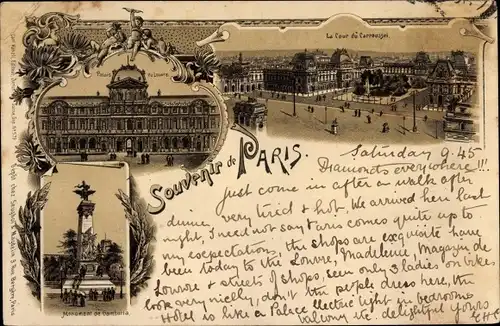 Palais du Louvre
La Cour du Carrousel
Souvenir de PARIS.
Monument de Gambetta
Saturday 9.45
Diamonds everywhere!!!
Just come in after a walk after
dinner, very tired & hot. We arrived here last
night, I need not say Paris comes quite up to
my expectations, the shops are exquisite have
been today to the Louvre, Madeleine, Magazin de
Louvre & streets of shops, seen only 3 ladies on bikes
look very nicely, don't the people dress here, the
Hotel is like a Palace electric light in bedrooms
balcony etc. delightful yours